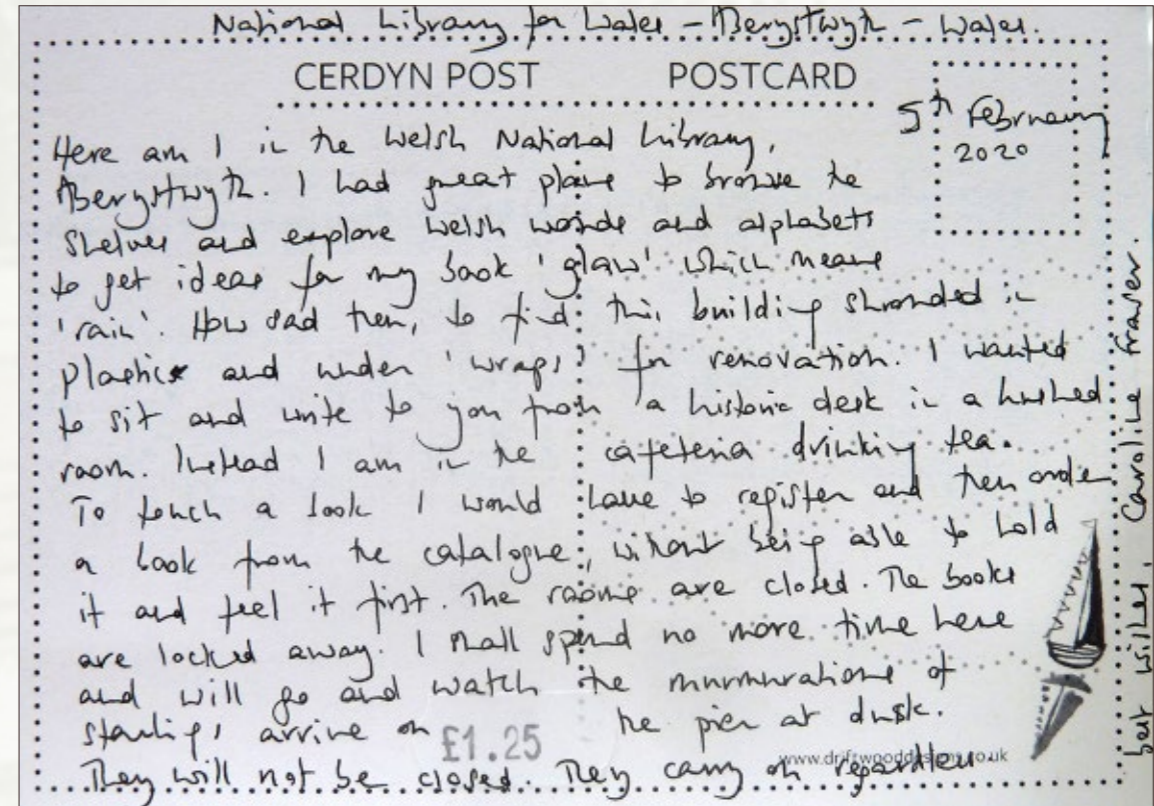 National Library for Wales – Aberystwyth – Wales.
CERDYN POST POSTCARD
5th February
2020
Here am I in the Welsh National Library,
Aberystwyth. I had great plans to browse the
shelves and explore Welsh words and alphabets
to get ideas for my book 'glaw' which means
'rain'. How sad then, to find this building shrouded in
plastic and under 'wraps' for renovation. I wanted
to sit and write to you from a historic desk in a hushed
room. Instead I am in the cafeteria drinking tea.
To touch a book I would have to register and then order
a book from the catalogue, without being able to hold
it and feel it first. The rooms are closed. The books
are locked away. I shall spend no more time here
and will go and watch the murmurations of
starlings arrive on the pier at dusk.
£1.25
www.driftwooddesigns.co.uk
They will not be closed. They carry on regardless.
best wishes, Caroline Fraser.